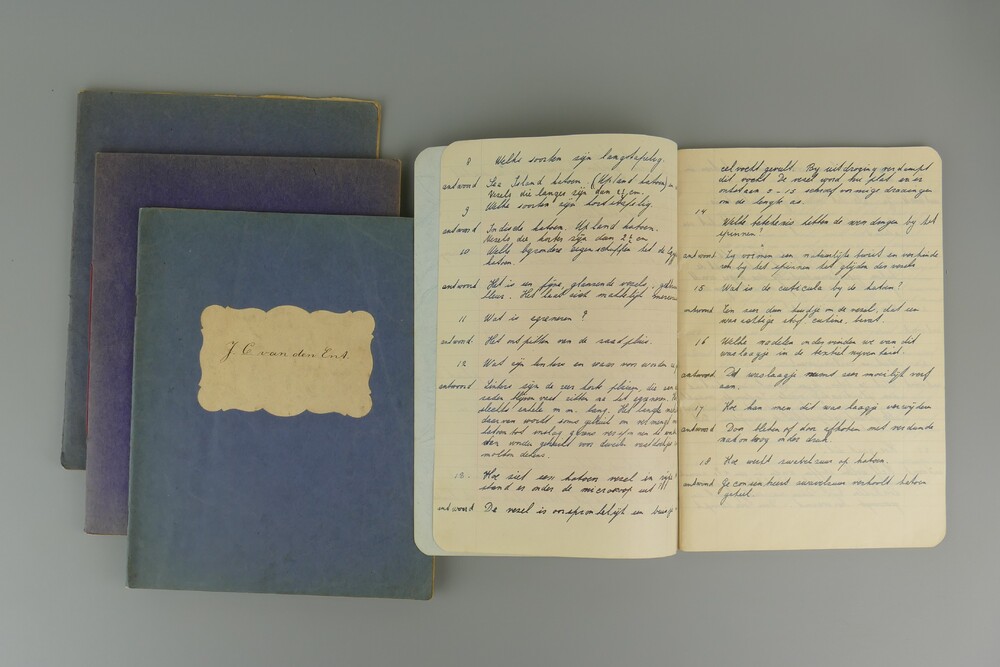 J. C. van den Ent.
8 Welke soorten zijn langstapelig.
antwoord Sea Island katoen. (Upland katoen)
Vezels die langer zijn dan 2½ cm.
9 Welke soorten zijn kortstapelig.
antwoord Indische katoen. Upland katoen.
Vezels, die korter zijn dan 2½ cm
10 Welke byzondere eigenschappen het de
katoen.
antwoord Het is een fijne, glanzende vezels,
kleur. Het laat zich makkelijk
11 Wat is egreneren?
antwoord. Het ontpitten van de zaadpluis.
12 Wat zijn linters en waar voor worden
antwoord Linters zijn de zeer korte pluizen, die
zaden blijven vast zitten na het egreneren.
slechts enkele m.m. lang. Het langste
daarvan wordt soms gebruikt en vermengd
katoen tot
den worden gebruikt voor
molton dekens.
13. Hoe ziet een katoen vezel in rijpe
stand er onder de microscoop uit!!!
antwoord De vezel is oorspronkelijk een
celvocht gevuld. By uitdroging verdampt
dit vocht. De vezel word dus plat en er
ontstaan 5-15 schroefvormige draaiingen
om de lengte as.
14 Welke betekenis hebben de wendingen by het
spinnen?
antwoord Zy vormen een natuurlijke twist en verhinde
ren bij het spinnen het glijden des vezels
15 Wat is de cuticula by de katoen?
antwoord Een zeer dun huidje om de vezel, dat een
was achtige stof cutine, bevat.
16 Welke nadelen ondervinden we van dit
waslaagje in de textiel nijverheid.
antwoord. Dit waslaagje neemt zeer moeilijk verf
aan.
17 Hoe kan men dit waslaagje verwijderen
antwoord Door bleken of door afkoken met verdunde
natronloog onder druk.
18 Hoe werkt zwavelzuur op katoen.
antwoord Geconcentreerd zwavelzuur verkoolt katoen
geheel.